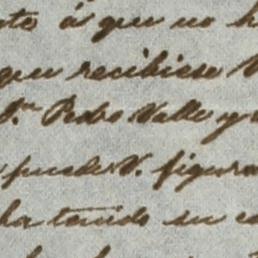 á que no h
que recibiese V
D.n Pedro Valle y
puede V. figura
ha tenido su